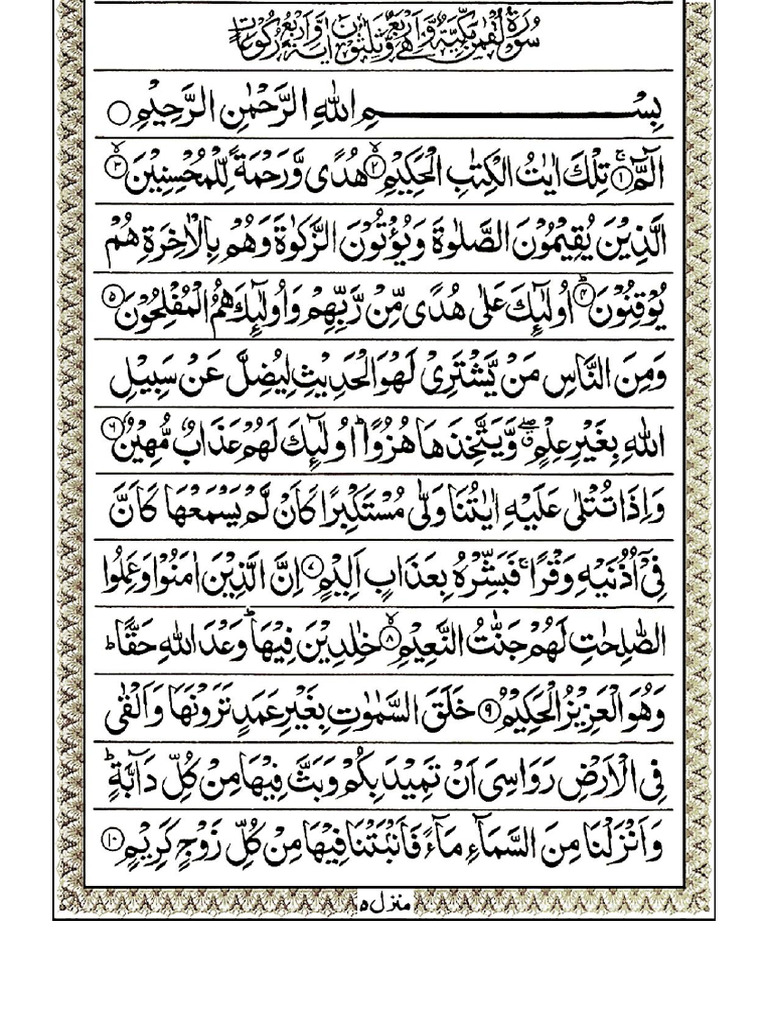 سُوْرَةُ لُقْمٰنَ مَكِّيَّةٌ وَّهِيَ اَرْبَعٌ وَّثَلٰثُوْنَ اٰيَةً وَّاَرْبَعُ رُكُوْعَاتٍ
بِسْــــــــــمِ اللّٰهِ الرَّحْمٰنِ الرَّحِيْمِ ○
الٓمّٓ ۚ﴿۱﴾ تِلْكَ اٰيٰتُ الْكِتٰبِ الْحَكِيْمِ ۙ﴿۲﴾ هُدًى وَّرَحْمَةً لِّلْمُحْسِنِيْنَ ۙ﴿۳﴾
الَّذِيْنَ يُقِيْمُوْنَ الصَّلٰوةَ وَيُؤْتُوْنَ الزَّكٰوةَ وَهُمْ بِالْاٰخِرَةِ هُمْ
يُوْقِنُوْنَ ؕ﴿۴﴾ اُولٰٓئِكَ عَلٰى هُدًى مِّنْ رَّبِّهِمْ وَاُولٰٓئِكَ هُمُ الْمُفْلِحُوْنَ ﴿۵﴾
وَمِنَ النَّاسِ مَنْ يَّشْتَرِيْ لَهْوَ الْحَدِيْثِ لِيُضِلَّ عَنْ سَبِيْلِ
اللّٰهِ بِغَيْرِ عِلْمٍ ۖۗ وَّيَتَّخِذَهَا هُزُوًا ؕ اُولٰٓئِكَ لَهُمْ عَذَابٌ مُّهِيْنٌ ﴿۶﴾
وَاِذَا تُتْلٰى عَلَيْهِ اٰيٰتُنَا وَلّٰى مُسْتَكْبِرًا كَاَنْ لَّمْ يَسْمَعْهَا كَاَنَّ
فِيْٓ اُذُنَيْهِ وَقْرًا ۚ فَبَشِّرْهُ بِعَذَابٍ اَلِيْمٍ ﴿۷﴾ اِنَّ الَّذِيْنَ اٰمَنُوْا وَعَمِلُوا
الصّٰلِحٰتِ لَهُمْ جَنّٰتُ النَّعِيْمِ ۙ﴿۸﴾ خٰلِدِيْنَ فِيْهَا ؕ وَعْدَ اللّٰهِ حَقًّا ؕ
وَهُوَ الْعَزِيْزُ الْحَكِيْمُ ﴿۹﴾ خَلَقَ السَّمٰوٰتِ بِغَيْرِ عَمَدٍ تَرَوْنَهَا وَاَلْقٰى
فِي الْاَرْضِ رَوَاسِيَ اَنْ تَمِيْدَ بِكُمْ وَبَثَّ فِيْهَا مِنْ كُلِّ دَآبَّةٍ ؕ
وَاَنْزَلْنَا مِنَ السَّمَآءِ مَآءً فَاَنْۢبَتْنَا فِيْهَا مِنْ كُلِّ زَوْجٍ كَرِيْمٍ ﴿۱۰﴾
منزل ۵